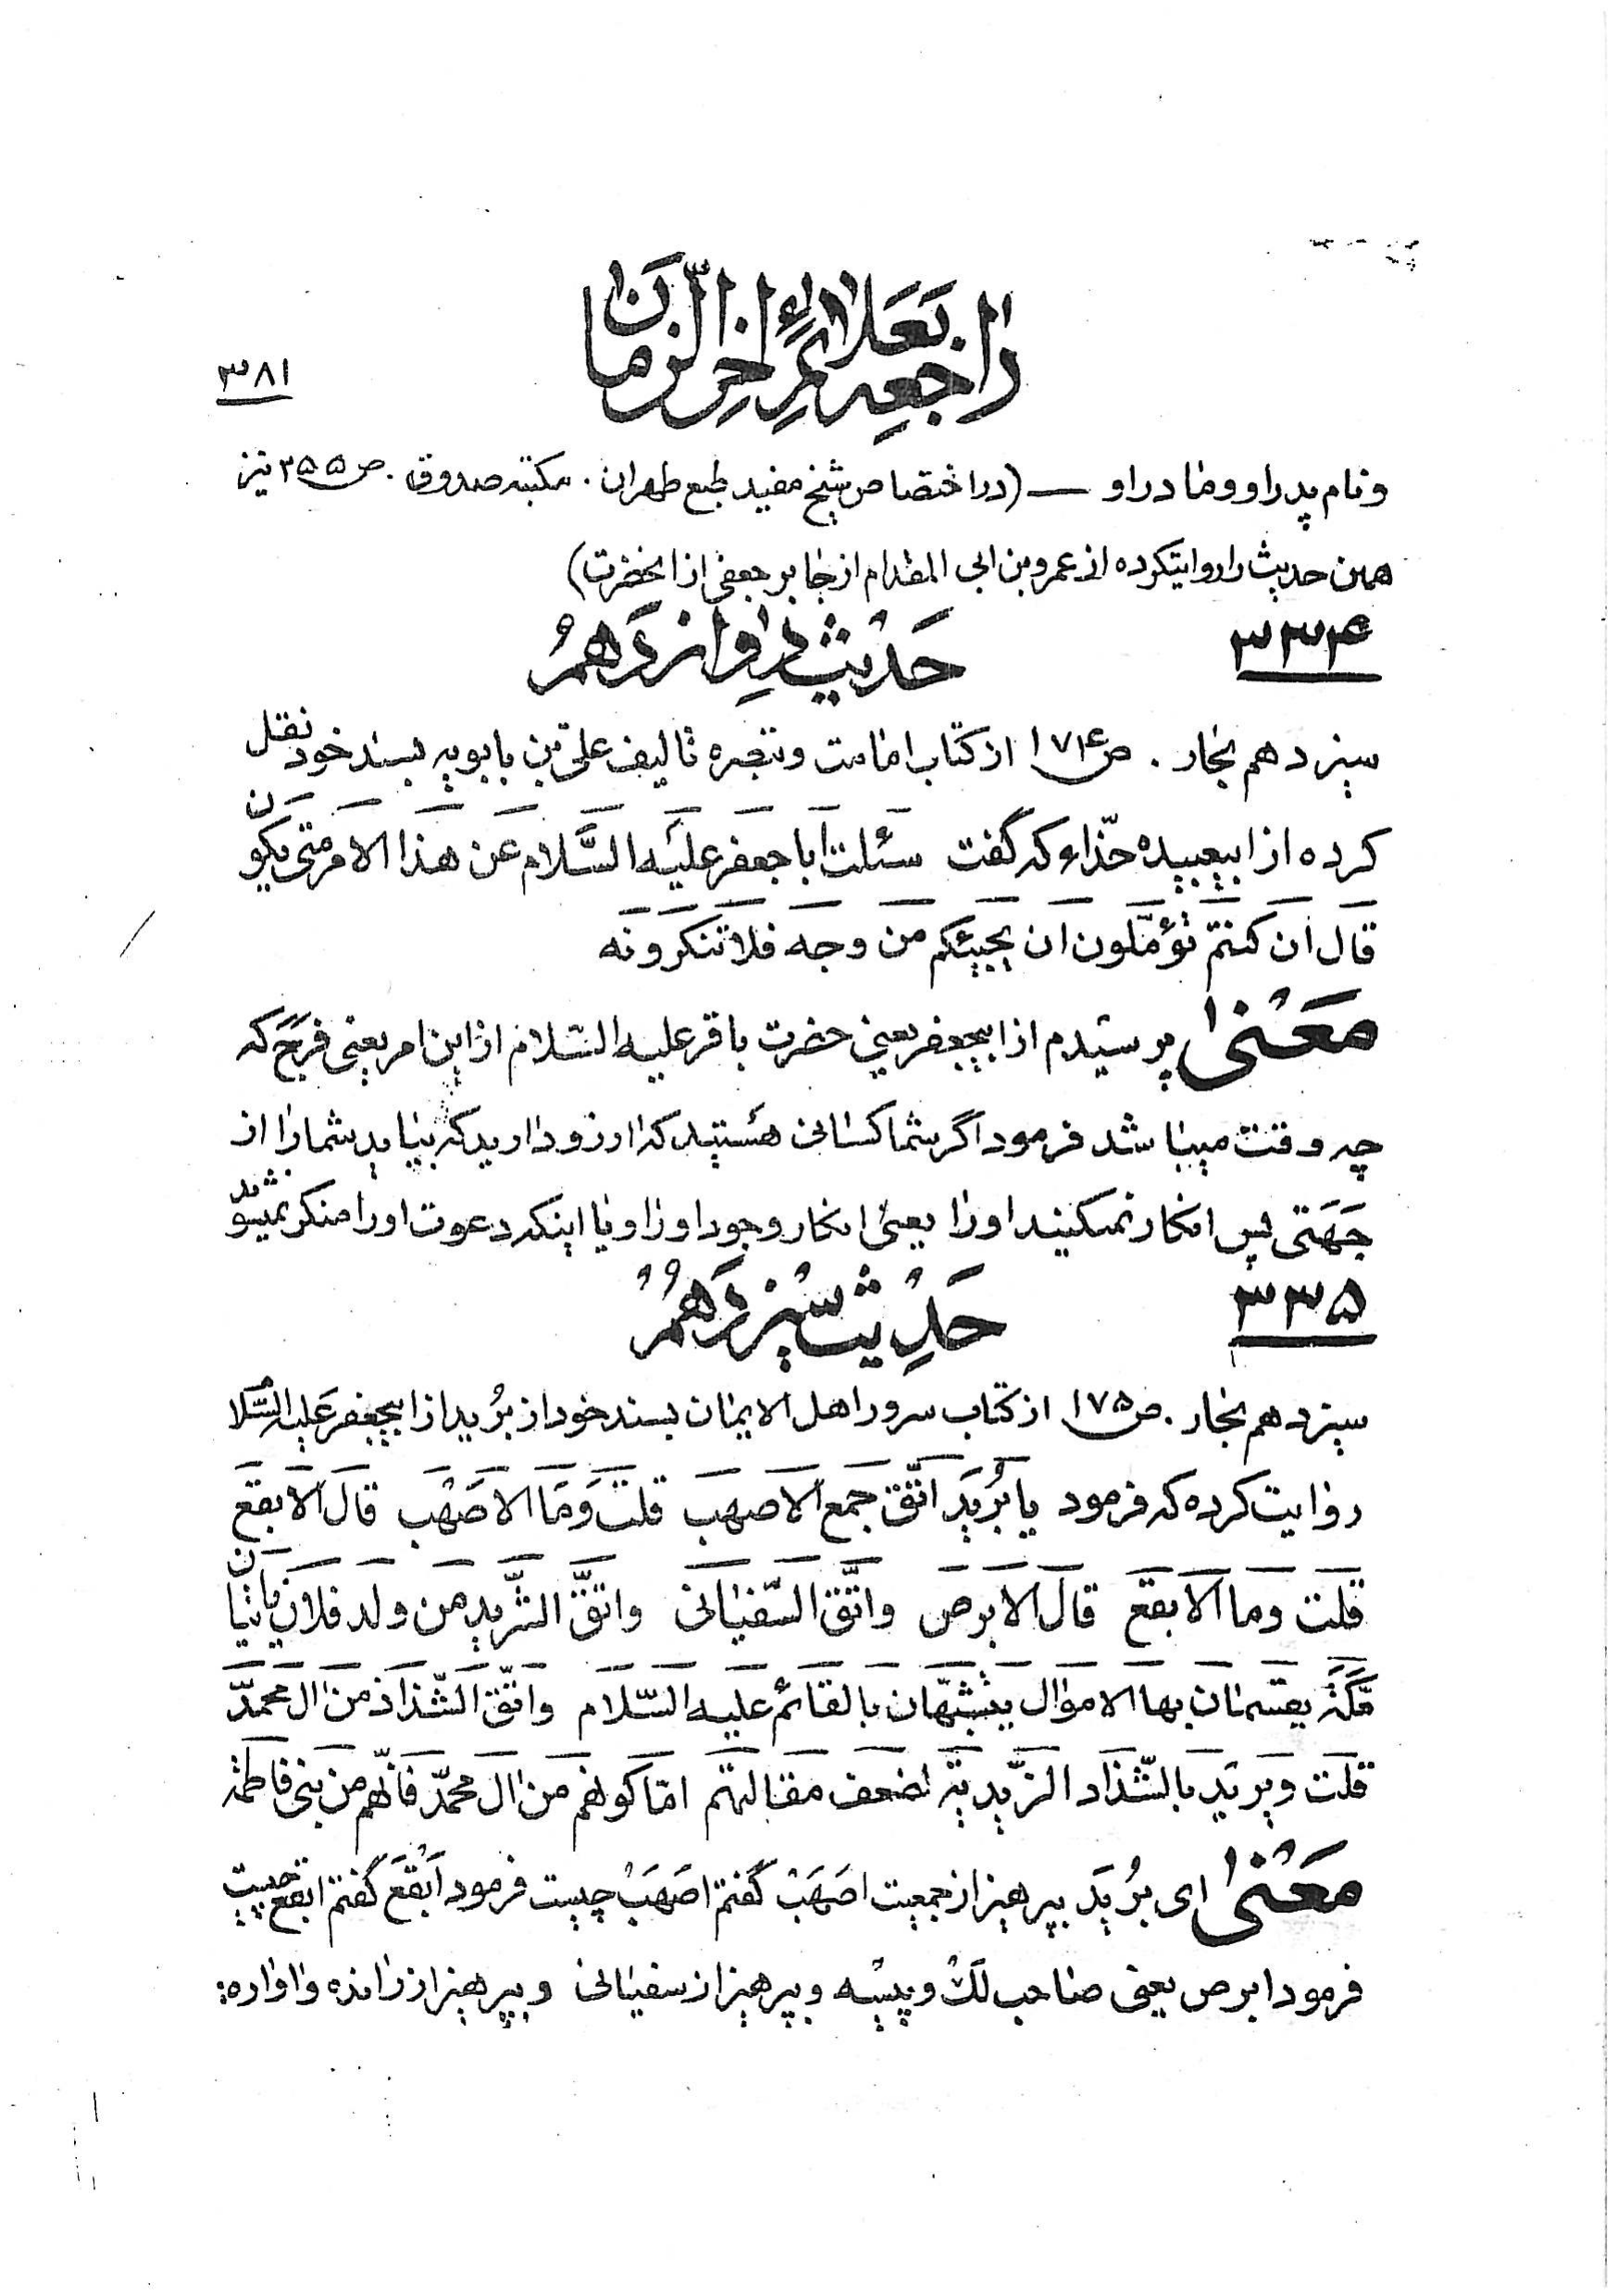 راجعه بعلائم اخر الزمان
۳۸۱
و نام پدر او و مادر او — (در اختصاص شیخ مفید طبع طهران. مکتبه صدوق. ص۲۵۵ نیز
همین حدیث را روایتکرده از عمرو بن ابی المقدام از جابر جعفی از انحضرت)
۳۳۴
حدیث دوازدهم
سیزدهم بحار. ص۱۷۴ از کتاب امامت و تبصره تالیف علی بن بابویه بسند خود نقل
کرده از ابیعبیده حذّاء که گفت سَئلت اَبا جعفر علیَه السَّلام عَن هَذا الامر متی یکون
قالَ اِن کنتم تؤمّلون ان یجیئکم من وجه فلا تنکرونه
مَعنی پرسیدم از ابیجعفر یعنی حضرت باقر علیه السّلام از این امر یعنی فرَج که
چه وقت میباشد فرمود اگر شما کسانی هستید که ارزو دارید که بیاید شما را از
جَهَتی پس انکار نمیکنید او را یعنی انکار وجود او را و یا اینکه دعوت او را منکر نمیشوید
۳۳۵
حَدیث سیزدَهم
سیزدهم بحار. ص۱۷۵ از کتاب سرور اهل الایمان بسند خود از بُرید از ابیجعفر عَلیه السَّلام
روایت کرده که فرمود یا بُرَید اتّق جمع الاصهب قلتَ وَمَا الاصَهَب قالَ الاَبقع
قلت وما الاَبقع قالَ الابرص واتّق السّفیانی واتقّ الشّرید من ولد فلان یاتیان
مَکّة یقسمان بها الاموال یتشبّهان بالقائم علیه السّلام واتقّ الشّذاذ من ال محمّد
قلت ویرید بالشّذاذ الزّیدیة لضعف مقالتهم امّا کونهم من ال محمّد فانّهم من بنی فاطمة
مَعنی ای بُرَید بپرهیز از جمعیت اصَهَب گفتم اصَهَب چیست فرمود اَبقَع گفتم ابقع چیست
فرمود ابرص یعنی صاحب لَک و پیسه و بپرهیز از سفیانی و بپرهیز از رانده و اواره: